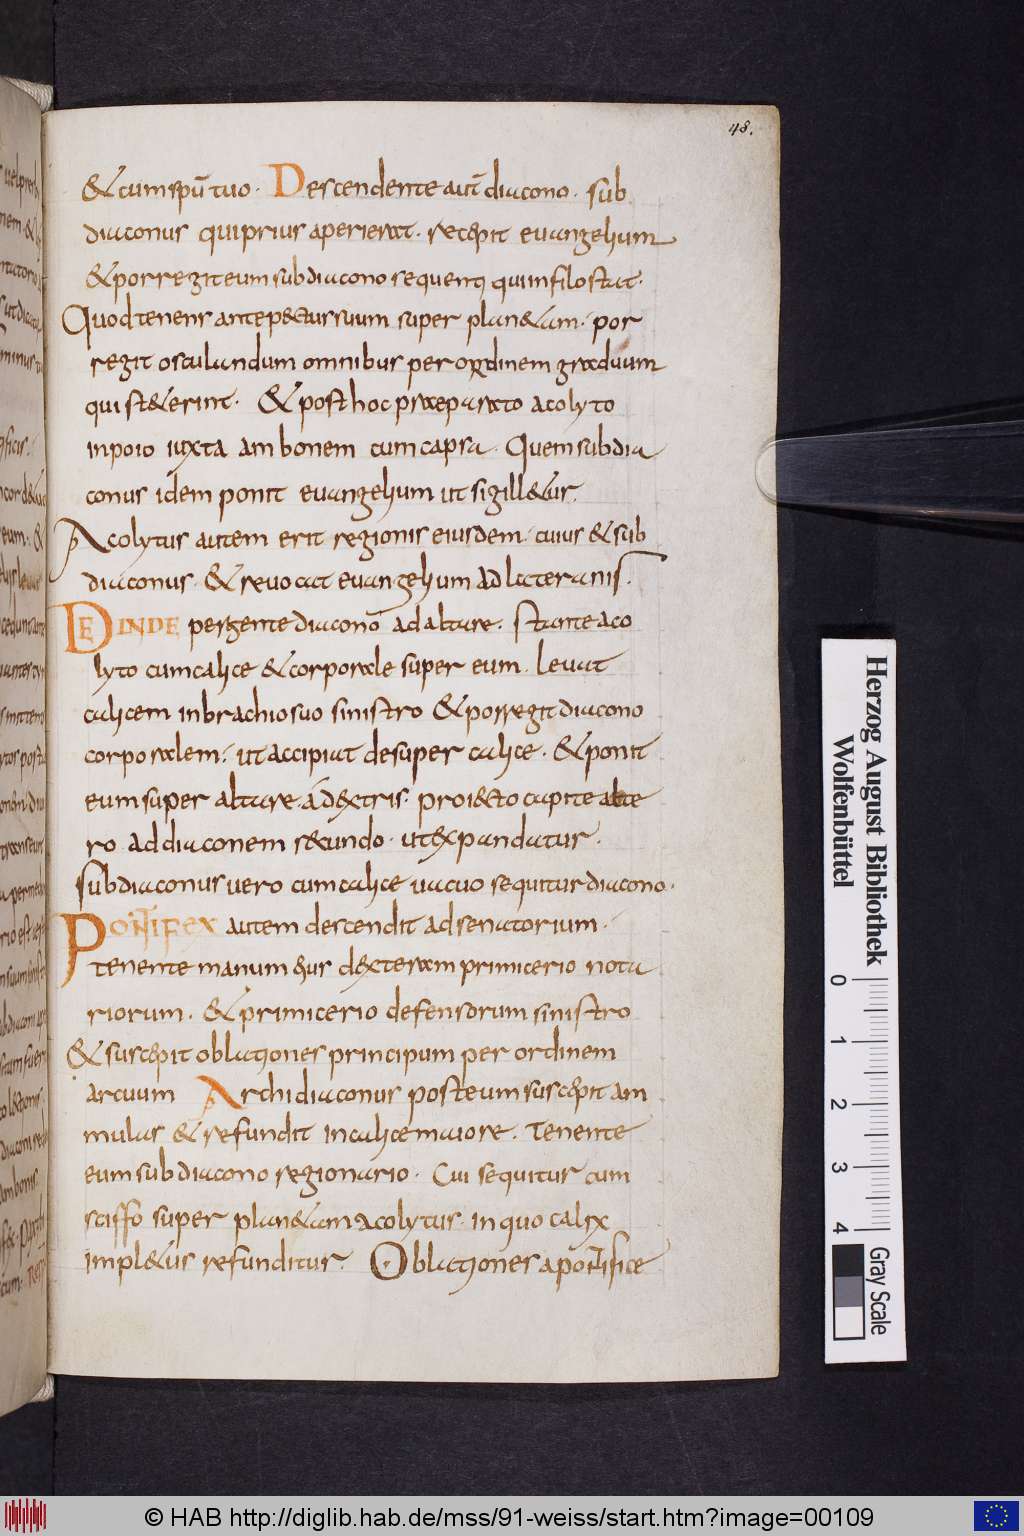 48.
& cum spū tuo. Descendente aut̄ diacono. sub
diaconus qui prius aperierat. recepit evangelium
& porregit eum subdiacono sequenti qui in filo stat.
Quod tenens ante pectus suum super planetam. por
regit osculandum omnibus per ordinem graduum
qui steterint. & post hoc praeparato acolyto
in poio iuxta ambonem cum capsa. Quem subdia
conus idem ponit evangelium ut sigilletur.
Acolytus autem erit regionis eiusdem. cuius & sub
diaconus. & revocat evangelium ad lateranis.
DEINDE pergente diacono ad altare. stante aco
lyto cum calice & corporale super eum. levat
calicem in brachio suo sinistro & porregit diacono
corporalem. ut accipiat desuper calice. & ponit
eum super altare a dextris. proiecto capite alte
ro ad diaconem secundo. ut expandatur.
subdiaconus vero cum calice vacuo sequitur diacono.
PONTIFEX autem descendit ad senatorium.
tenente manum eius dexteram primicerio nota
riorum. & primicerio defensorum sinistro
& suscepit oblationes principum per ordinem
arcuum Archidiaconus post eum suscepit am
mulas & refundit in calice maiore. Tenente
eum subdiacono regionario. Cui sequitur cum
sciffo super planetam acolytus. in quo calix
impletus refunditur. Oblationes a pontifice
Herzog August Bibliothek
Wolfenbüttel
0 1 2 3 4
Gray Scale
© HAB http://diglib.hab.de/mss/91-weiss/start.htm?image=00109